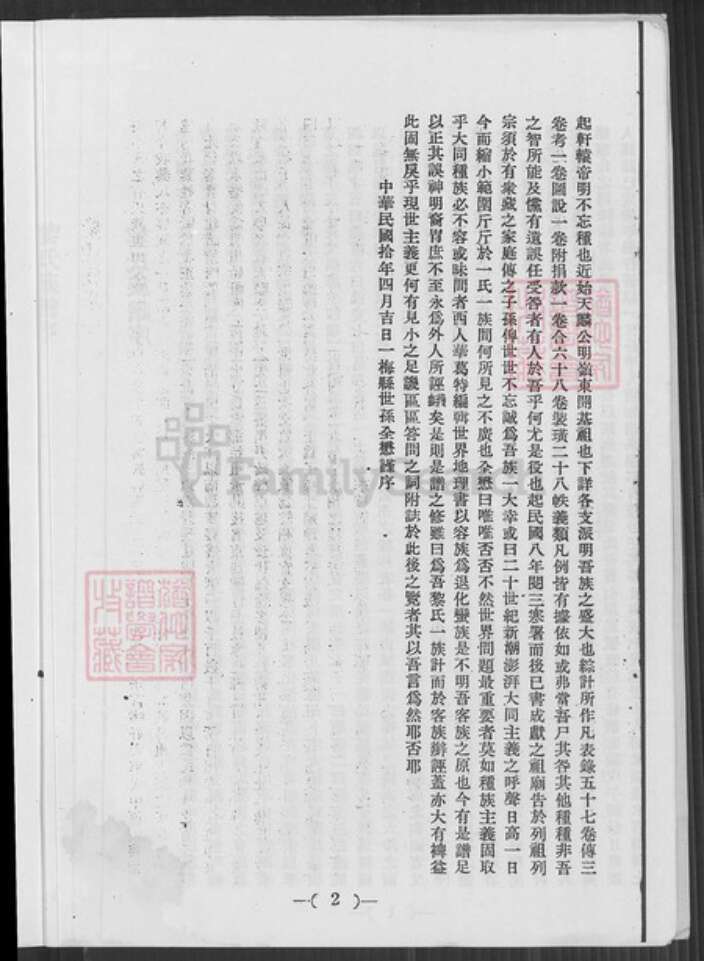 起軒轅帝明不忘種也近始天麟公明嶺東開基祖也下詳各支派明吾族之盛大也綜計所作凡表錄五十七卷傳三
卷考一卷圖說一卷附捐款一卷合六十八卷裝璜二十八帙義類凡例皆有據依如或弗當吾尸其咎其他種種非吾
之智所能及懍有遺誤任受咎者有人於吾乎何尤是役也起民國八年閱三寒暑而後已書成獻之祖廟告於列祖列
宗須於有衆藏之家庭傳之子孫俾世世不忘誠爲吾族一大幸或曰二十世紀新潮澎湃大同主義之呼聲日高一日
今而縮小範圍斤斤於一氏一族間何所見之不廣也全懋曰唯唯否否不然世界問題最重要者莫如種族主義固取
乎大同種族必不容或昧間者西人華葛特編輯世界地理書以容族爲退化蠻族是不明吾客族之原也今有是譜足
以正其誤神明裔胄庶不至永爲外人所誣衊矣是則是譜之修雖曰爲吾黎氏一族計而於客族辯誣蓋亦大有裨益
此固無戾乎現世主義更何有見小之足譏區區答問之詞附誌於此後之覽者其以吾言爲然耶否耶
中華民國拾年四月吉日一梅縣世孫全懋謹序
譜學會
收藏
FamilySearch
—( 2 )—